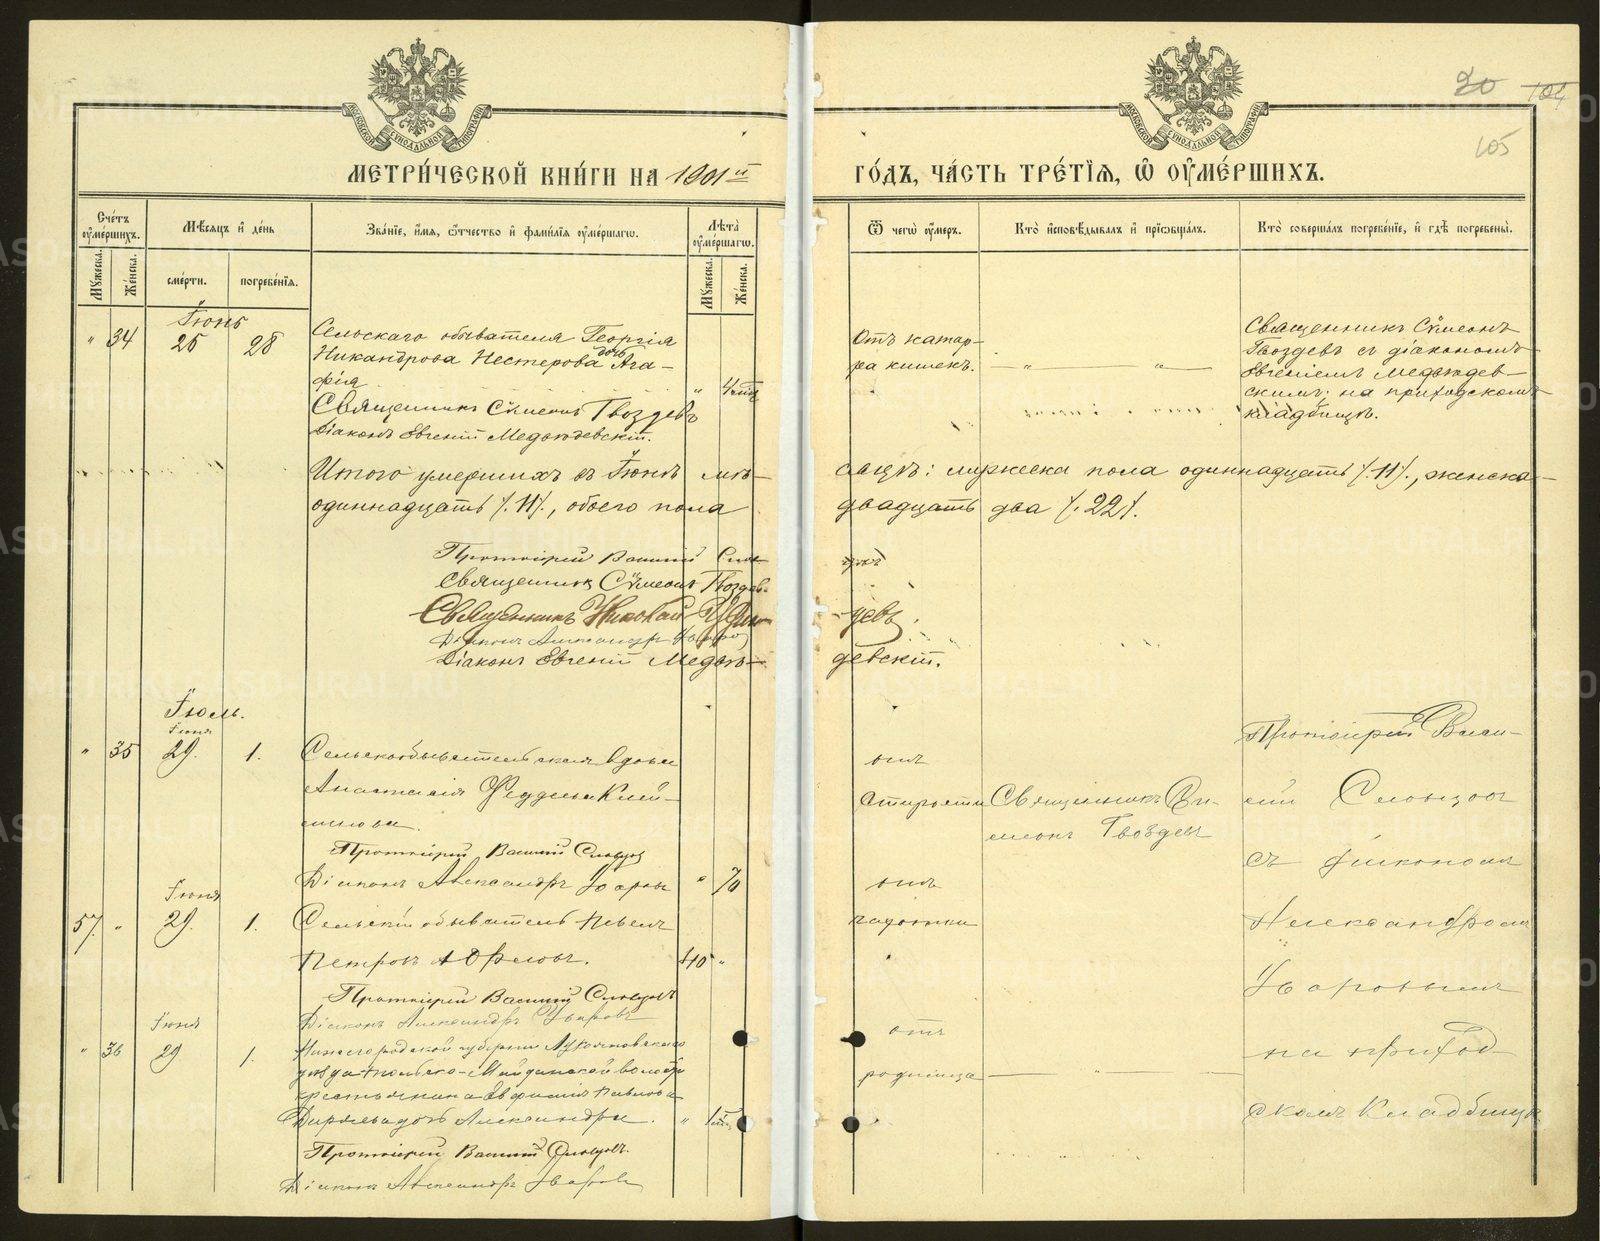 20 104
105
МЕТРИ́ЧЕСКОЙ КНИ́ГИ НА 1901й ГО́ДЪ, ЧА́СТЬ ТРЕ́ТЇѦ, Ѿ ОУ҆МЕ́РШИХЪ.
Сче́тъ оу҆ме́ршихъ.
Мꙋ́жеска.
Же́нска.
Мѣ́сѧцъ и҆ де́нь
сме́рти.
погребе́нїѧ.
Зва́нїе, и҆́мѧ, ѻ҆́тчество и҆ фами́лїѧ оу҆ме́ршагѡ.
Лѣ́та оу҆ме́ршагѡ.
Мꙋ́жеска.
Же́нска.
Ѿ чегѡ̀ оу҆́меръ.
Кто̀ и҆сповѣ́дывалъ и҆ прїѡбща́лъ.
Кто̀ соверша́лъ погребе́нїе, и҆ гдѣ̀ погребены̀.
Іюнь
" 34 25 28
Сельскаго обывателя Георгія
Никандрова Нестерова дочь Ага-
фія
" 4
Священникъ Сѵмеонъ Гвоздевъ
Діаконъ Евгеній Медвѣдевскій.
Отъ катар-
ра кишекъ.
" "
Священникъ Сѵмеонъ
Гвоздевъ съ діакономъ
Евгеніемъ Медвѣдев-
скимъ; на приходскомъ
кладбищѣ.
Итого умершихъ въ Іюнѣ мѣ-сяцѣ: мужеска пола одиннадцать /.11/., женска-
одиннадцать /.11/., обоего пола двадцать два /.22/.
Протоіерей Василій Словцовъ
Священникъ Сѵмеонъ Гвоздев-
Священникъ Николай
Діаконъ Александръ Уваров
Діаконъ Евгеній Медвѣ-девскій.
Іюль.
Іюня
" 35 29. 1.
Сельскообывательская вдова
Анастасія
Протоіерей Василій Словцов
Діаконъ Александръ Уваров
" 70
отъ
старости
Священникъ Си-
меонъ Гвоздевъ
Протоіерей Васи-
лій Словцовъ
съ діакономъ
Александромъ
Уваровымъ
на приход-
скомъ кладбищѣ
Іюня
57. " 29. 1.
Сельскій обыватель Павелъ
Петровъ
"
Протоіерей Василій Словцовъ
Діаконъ Александръ Уваровъ
отъ
чахотки
Іюня
" 36 29 1.
Нижегородской губерніи Лукояновскаго
уѣзда Майданской волости
крестьянина Евфимія Павлова
дочь Александра.
"
Протоіерей Василій Словцовъ.
Діаконъ Александръ Уваровъ
отъ
родимца
"